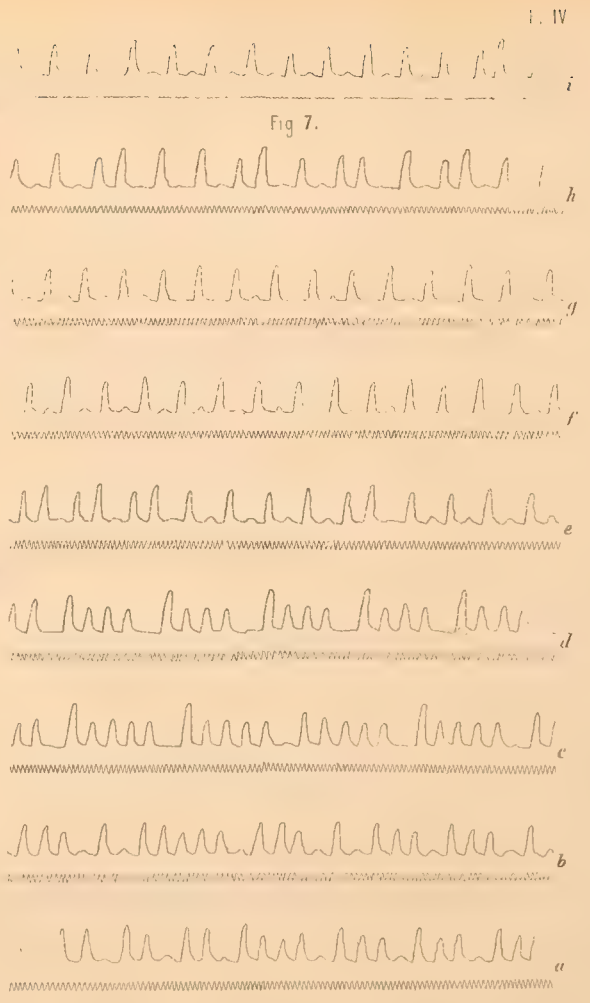 IV
i
Fig 7.
h
g
f
e
d
c
b
a